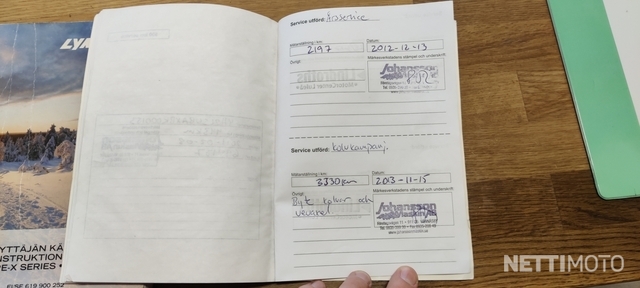 LYN
YTTÄJÄN KÄ
NSTRUKTION
PE-X SERIES •
FI/SE 619 900 252
Service utförd: Årsservice
Mätarställning i km: Datum:
2197 2012-12-13
Övrigt Märkesverkstadens stämpel och underskrift
Johansson
Service utförd: Kolvkampanj.
Mätarställning i km: Datum:
3330 km 2013-11-15
Övrigt Märkesverkstadens stämpel och underskrift
Byt kolvar och
vevaxel
Johansson
Maskin AB
NETTIMOTO